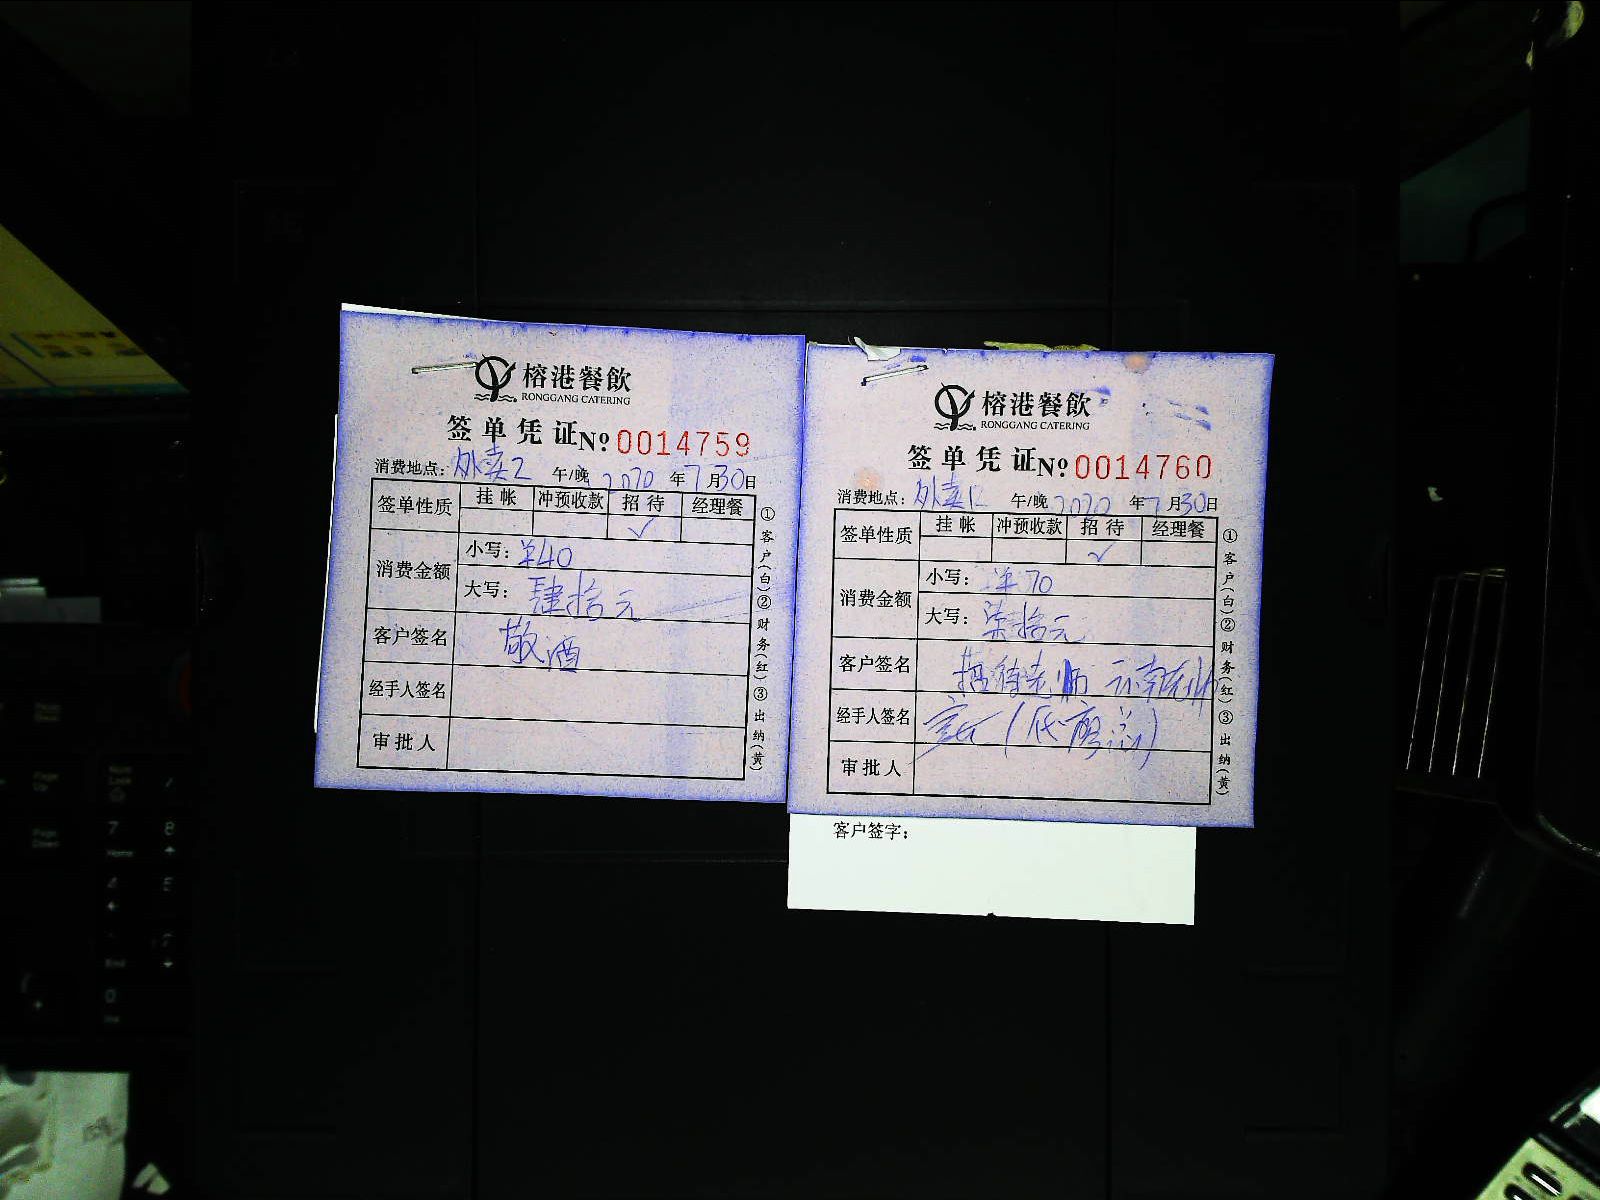 榕港餐飲
RONGGANG CATERING
签单凭证№ 0014759
消费地点：外卖2 午/晚 2020年7月30日
签单性质 挂帐 冲预收款 招待 经理餐
✓
消费金额 小写：¥40
大写：肆拾元
客户签名 敬酒
经手人签名
审批人
①客户(白)②财务(红)③出纳(黄)
榕港餐飲
RONGGANG CATERING
签单凭证№ 0014760
消费地点：外卖12 午/晚 2020年7月30日
签单性质 挂帐 冲预收款 招待 经理餐
✓
消费金额 小写：¥70
大写：柒拾元
客户签名 招待老师
经手人签名
审批人
①客户(白)②财务(红)③出纳(黄)
客户签字：